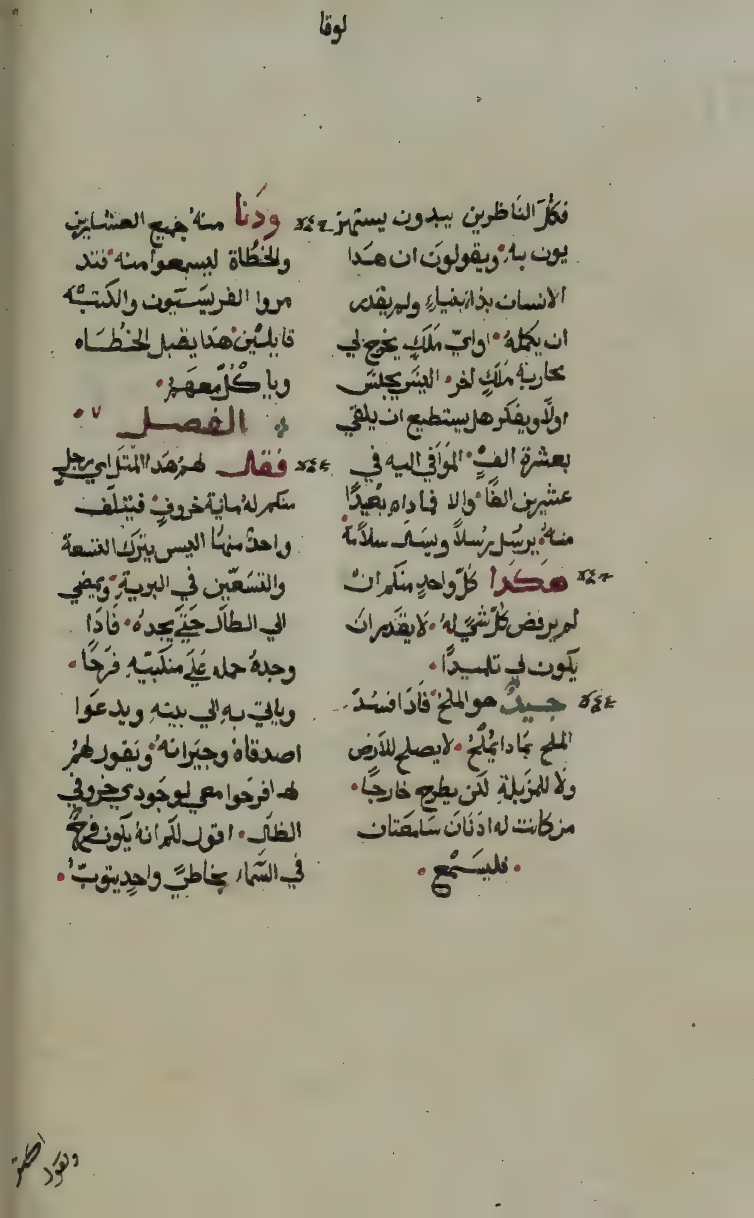 لوقا
فكلّ الناظرين يبدون يستهز
يون به ويقولون ان هدا
الانسان بدا بنيا ولم يقدر
ان يكمله اواي ملك يخرج لي
محاربة ملك اخر اليس يجلس
اولا ويفكر هل يستطيع ان يلقي
بعشرة الف الموافي اليه في
عشرين الفا والا فما دام بعيدا
منه يرسل رسلا ويسال سلامة
هكدا كل واحد منكم ان
لم يرفض كل شي له لا يقدر ان
يكون لي تلميدا
جيد هو الملح فادا فسد
الملح بمادا يملح لا يصلح للارض
ولا للمزبلة لكن يطرح خارجا
من كانت له ادنان سامعتان
فليسمع
ودنا منه جميع العشارين
والخطاة ليسمعوا منه فتد
مروا الفريسيون والكتبه
قايلين هدا يقبل الخطاه
وياكل معهم
الفصل ٧
فقال لهم هدا المتل اي رجل
منكم له ماية خروف فيتلف
واحد منها اليس يترك التسعة
والتسعين في البرية ويمضي
الي الضال حتي يجده فادا
وجده حمله علي منكبيه فرحا
وياتي به الي بيته ويدعوا
اصدقاه وجيرانه ويقول لهم
افرحوا معي لوجودي خروفي
الضال اقول لكم انه يكون فرح
في السماء بخاطي واحد يتوب